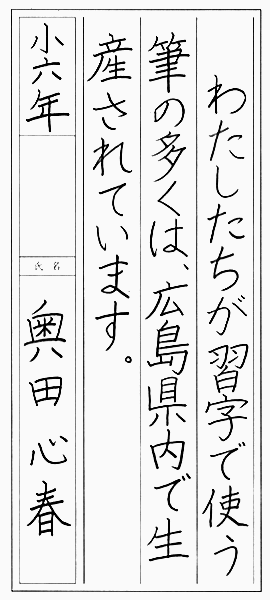 わたしたちが習字で使う
筆の多くは、広島県内で生
産されています。
小六年
氏名
奥田心春